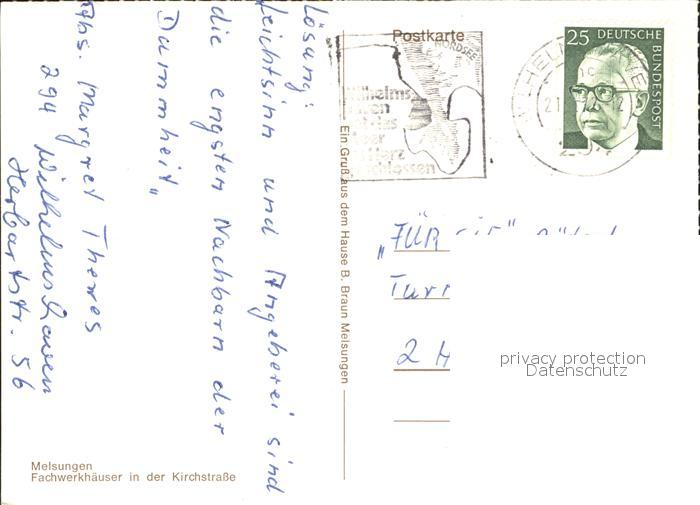 Lösung:
Leichtsinn und Angeberei sind
die engsten Nachbarn der
Dummheit"
Abs. Margret Thewes
294 Wilhelmshaven
Herbartstr. 56
Postkarte
NORDSEE
25 DEUTSCHE
BUNDESPOST
Ein Gruß aus dem Hause B. Braun Melsungen
„FÜR
2 H
privacy protection
Datenschutz
Melsungen
Fachwerkhäuser in der Kirchstraße